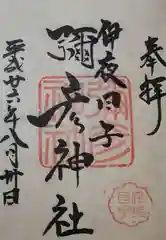 奉拝
伊夜日子
彌彦神社
平成廿六年八月卅日